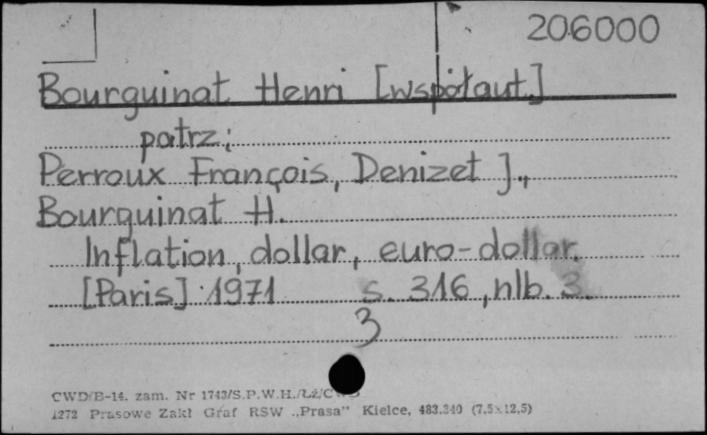 206000
Bourguinat Henri [współaut.]
patrz:
Perroux François, Denizet J.,
Bourguinat H.
Inflation, dollar, euro-dollar.
[Paris] 1971 s. 316, nlb. 3.
3
CWD/B-14. zam. Nr 1743/S.P.W.H./
1272 Prasowe Zakł Graf RSW „Prasa" Kielce, 483.340 (7,5x12,5)